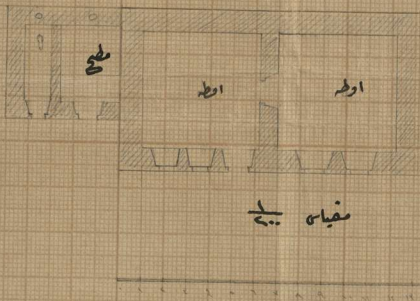 مطبخ
اوطه
اوطه
مقياس ١/٢٠٠